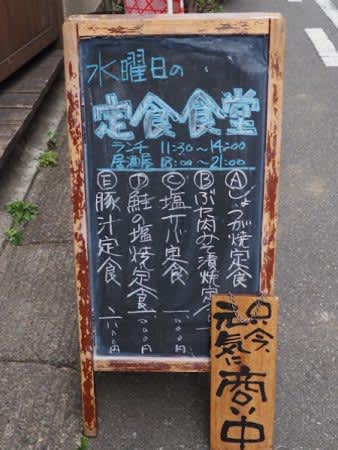 水曜日の
定食食堂
ランチ 11:30〜14:00
居酒屋 18:00〜21:00
Ⓐしょうが焼定食
Ⓑぶた肉みそ漬焼定
Ⓒ塩サバ定食
Ⓓ鮭の塩焼定食
Ⓔ豚汁定食
只今、
元気に
商い中